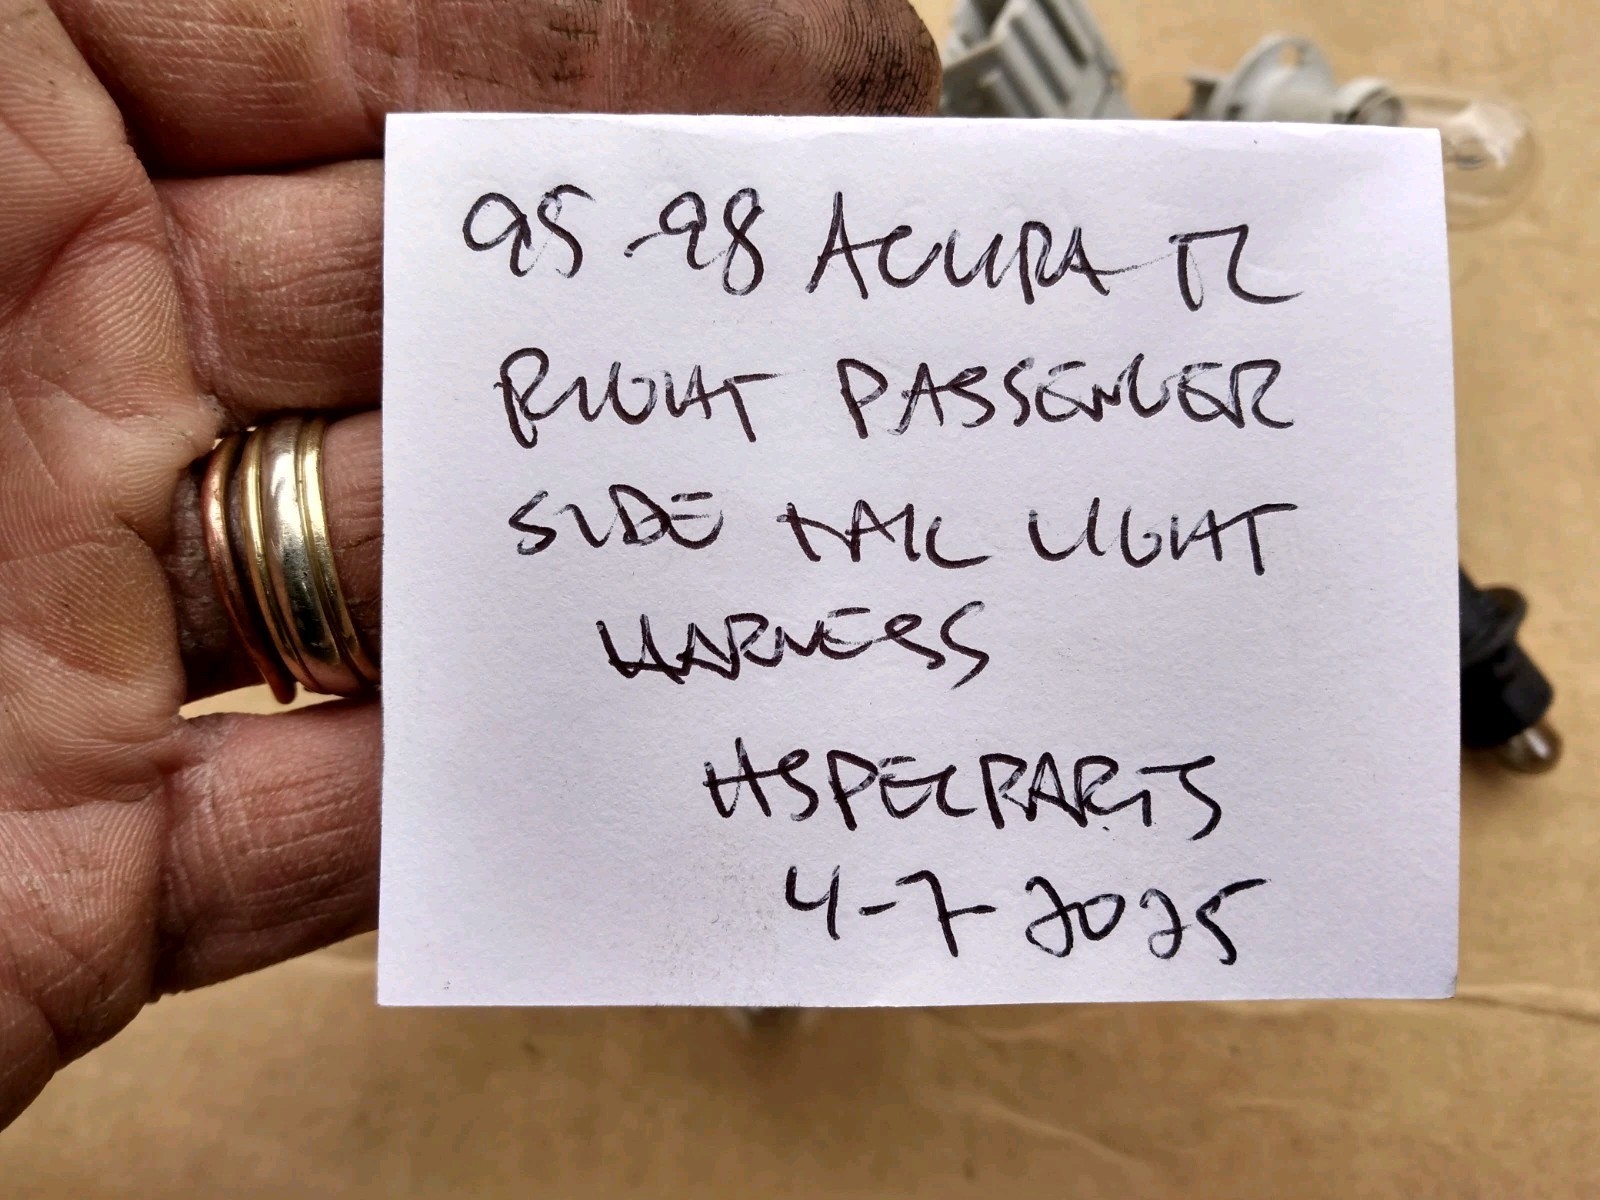 95-98 ACURA TL
RIGHT PASSENGER
SIDE TAIL LIGHT
HARNESS
HSPECPARTS
4-7-2025